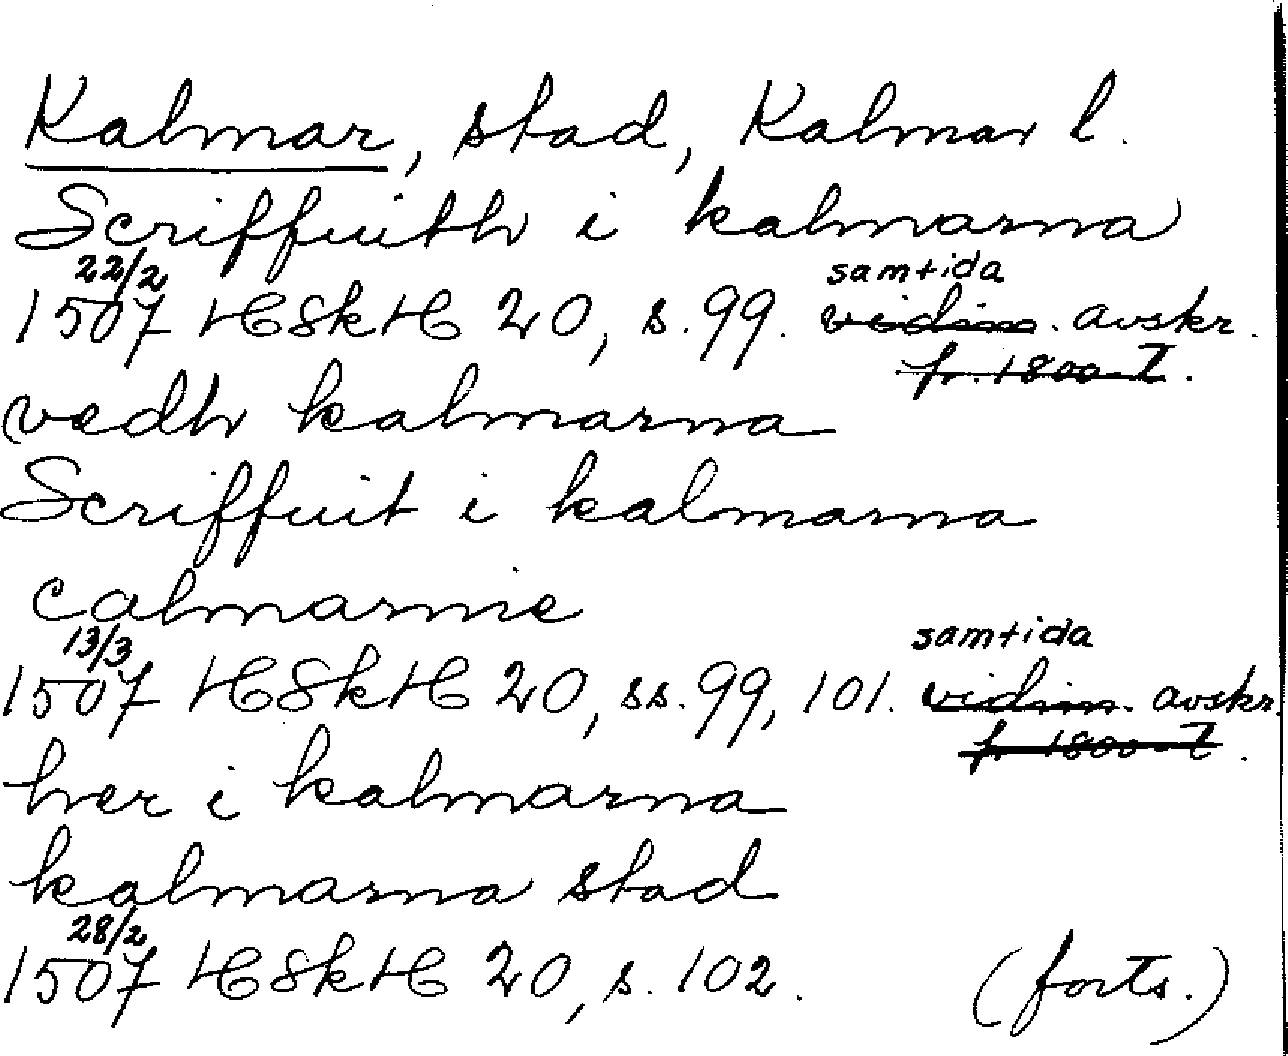 Kalmar, stad, Kalmar l.
Scriffuith i kalmarna
22/2 samtida
1507 HSkH 20, s. 99. vidim. avskr.
fr. 1800-T.
vedh kalmarna
Scriffuit i kalmarna
calmarnie
13/3 samtida
1507 HSkH 20, ss. 99, 101. vidim. avskr.
fr 1800-T.
her i kalmarna
kalmarna stad
28/2
1507 HSkH 20, s. 102. (forts.)